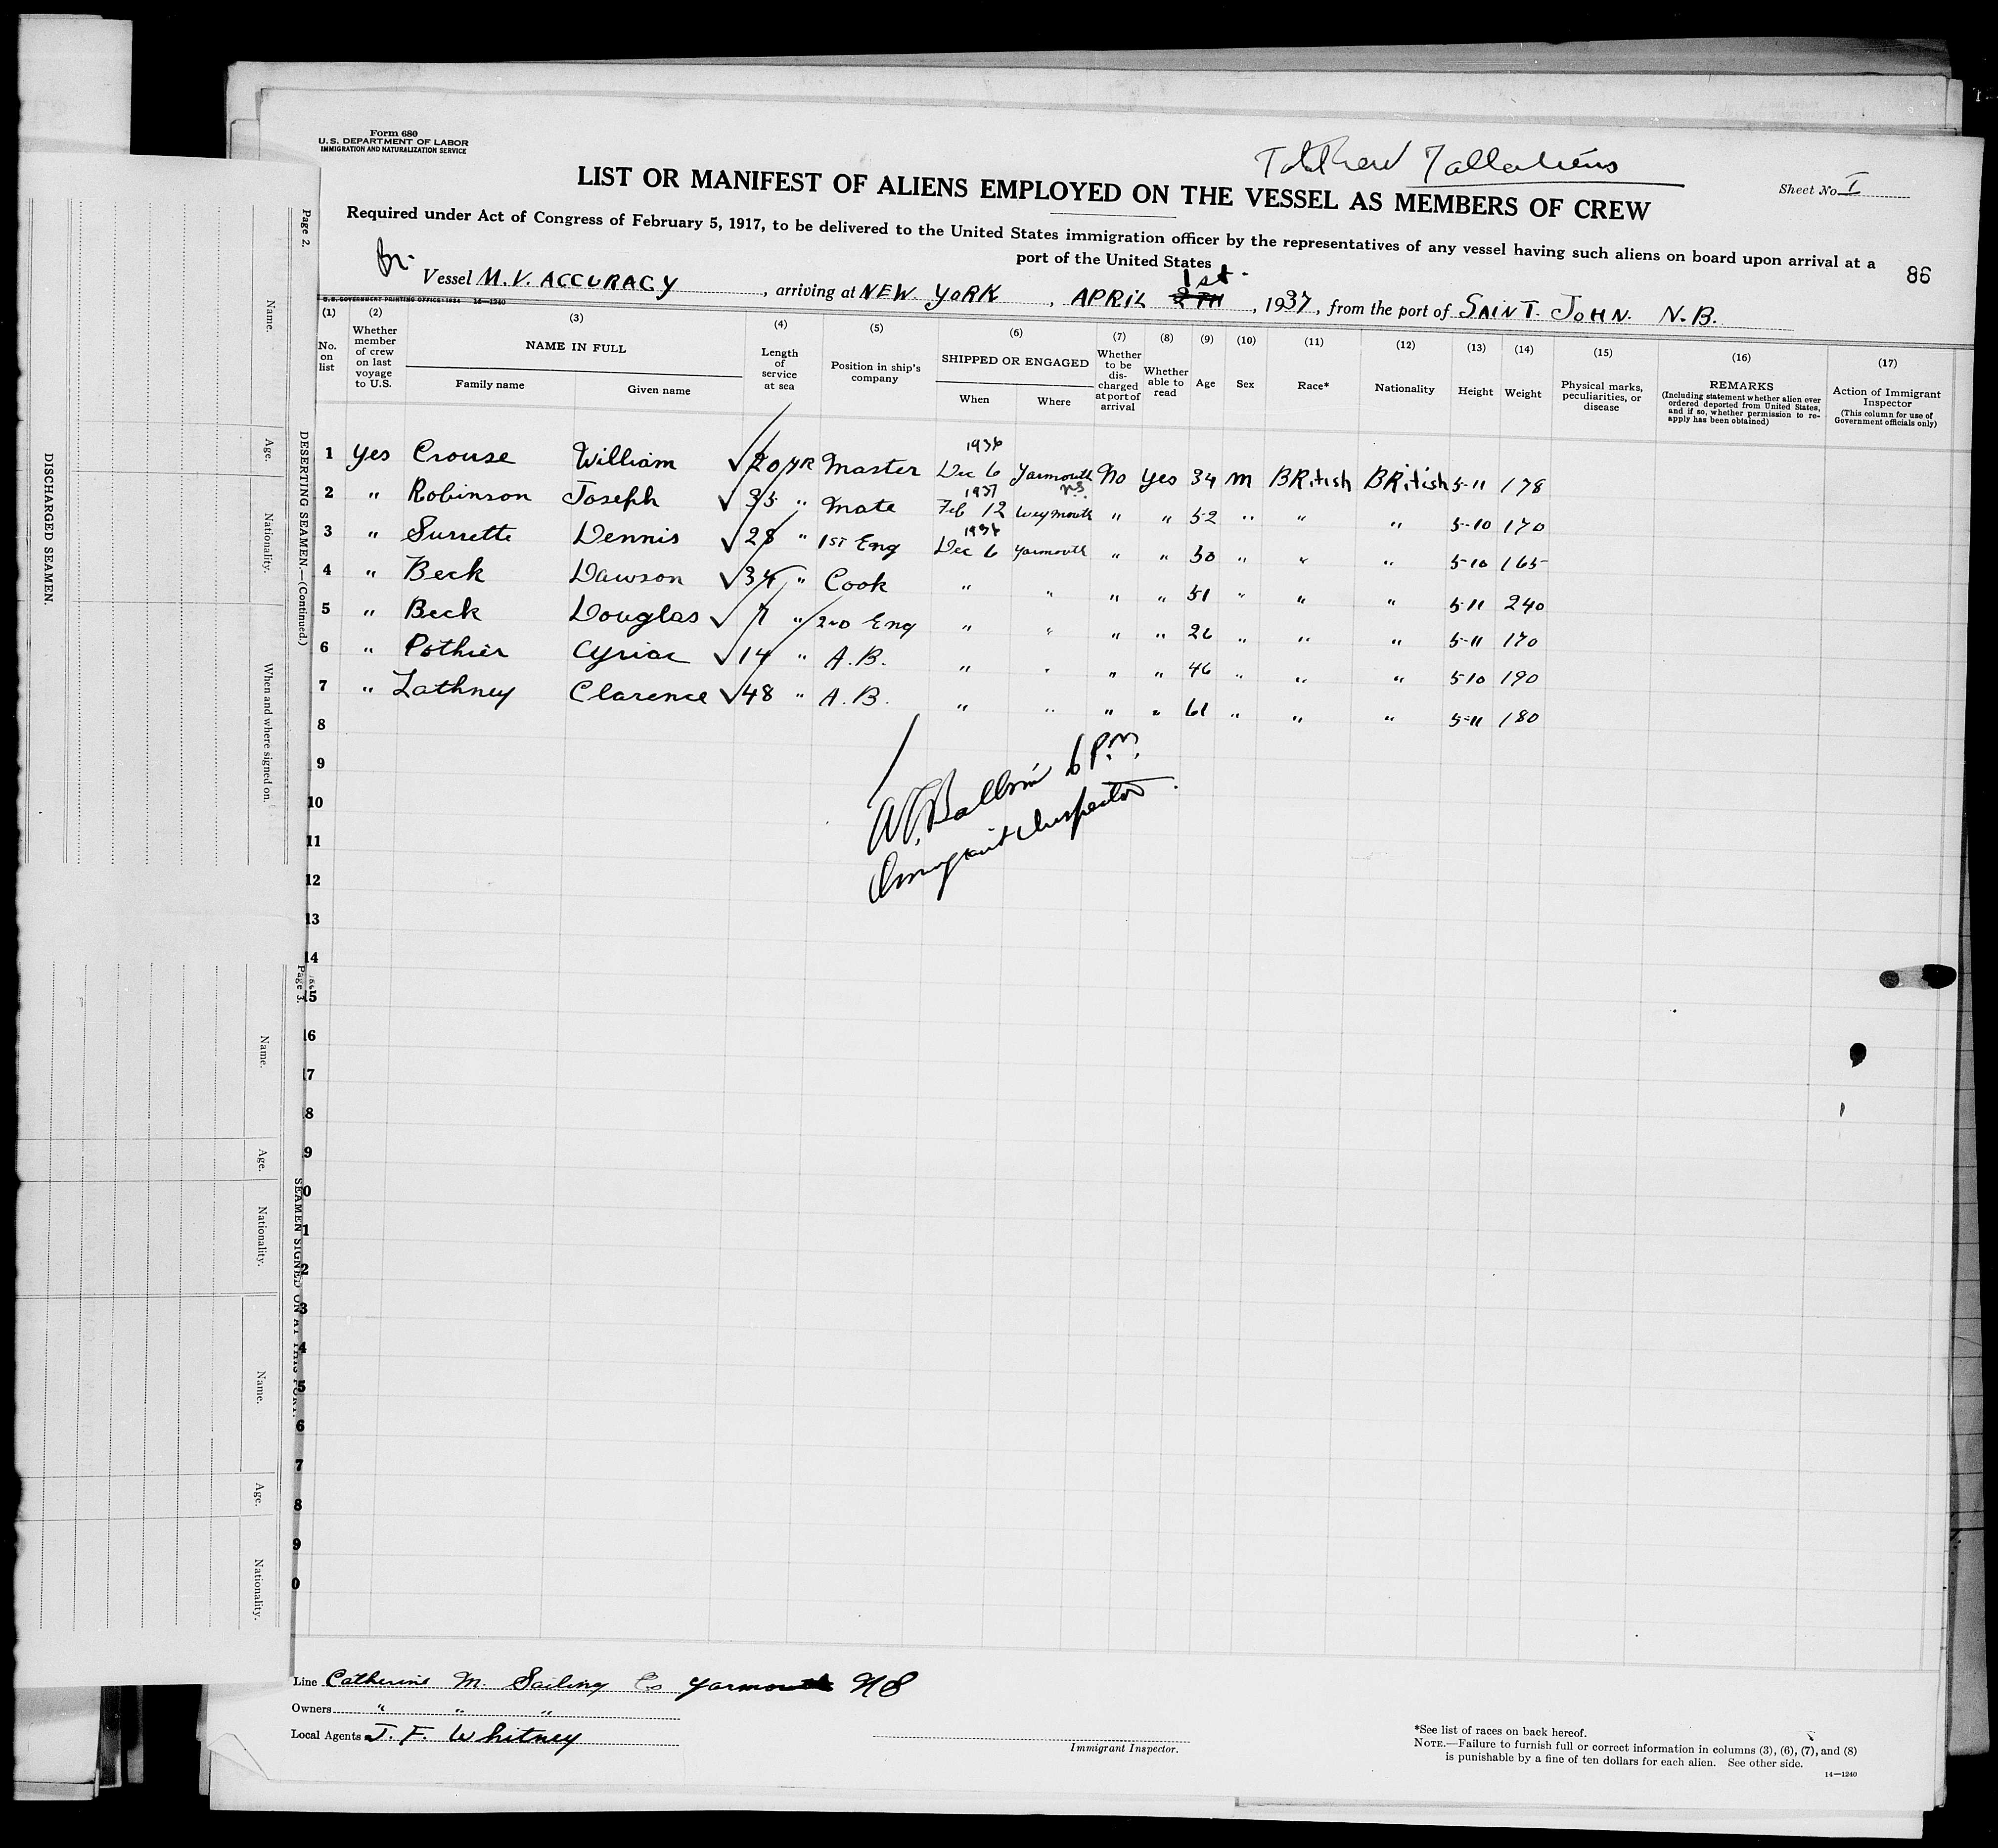 Form 680
U.S. DEPARTMENT OF LABOR
IMMIGRATION AND NATURALIZATION SERVICE
Sheet No. I
LIST OR MANIFEST OF ALIENS EMPLOYED ON THE VESSEL AS MEMBERS OF CREW
Required under Act of Congress of February 5, 1917, to be delivered to the United States immigration officer by the representatives of any vessel having such aliens on board upon arrival at a
port of the United States
86
Vessel M.V. ACCURACY, arriving at NEW YORK, APRIL 2TH 1st, 1937, from the port of SAINT. JOHN. N.B.
U.S. GOVERNMENT PRINTING OFFICE: 1934 14—1240
(1) (2) (3) (4) (5) (6) (7) (8) (9) (10) (11) (12) (13) (14) (15) (16) (17)
No. on list
Whether member of crew on last voyage to U.S.
NAME IN FULL
Family name
Given name
Length of service at sea
Position in ship's company
SHIPPED OR ENGAGED
When
Where
Whether to be discharged at port of arrival
Whether able to read
Age
Sex
Race*
Nationality
Height
Weight
Physical marks, peculiarities, or disease
REMARKS
(Including statement whether alien ever ordered deported from United States, and if so, whether permission to reapply has been obtained)
Action of Immigrant Inspector
(This column for use of Government officials only)
1 Yes Crouse William 20 YR Master 1936 Dec 6 Yarmouth N.S. No Yes 34 M BRitish BRitish 5-11 178
2 " Robinson Joseph 35 " Mate 1937 Feb 12 Weymouth " " 52 " " " 5-10 170
3 " Surrette Dennis 28 " 1ST Eng 1936 Dec 6 Yarmouth " " 50 " " " 5-10 165
4 " Beck Dawson 34 " Cook " " " " 51 " " " 5-11 240
5 " Beck Douglas 7 " 2ND Eng " " " " 26 " " " 5-11 170
6 " Pothier Cyriac 14 " A.B. " " " " 46 " " " 5-10 190
7 " Lathney Clarence 48 " A.B. " " " " 61 " " " 5-11 180
8
9
10
11
12
13
14
15
16
17
8
9
0
1
2
3
4
5
6
7
8
9
0
6 P.M.
Immigrant Inspector
Line Catherine M. Sailing Co Yarmouth NS
Owners " " "
Local Agents J. F. Whitney
Immigrant Inspector.
*See list of races on back hereof.
NOTE.—Failure to furnish full or correct information in columns (3), (6), (7), and (8)
is punishable by a fine of ten dollars for each alien. See other side.
14—1240
Page 2.
DISCHARGED SEAMEN.
Name.
Age.
Nationality.
When and where signed on.
DESERTING SEAMEN.—(Continued.)
Page 3.
SEAMEN SIGNED ON AT THIS PORT.
Name.
Age.
Nationality.
Name.
Age.
Nationality.